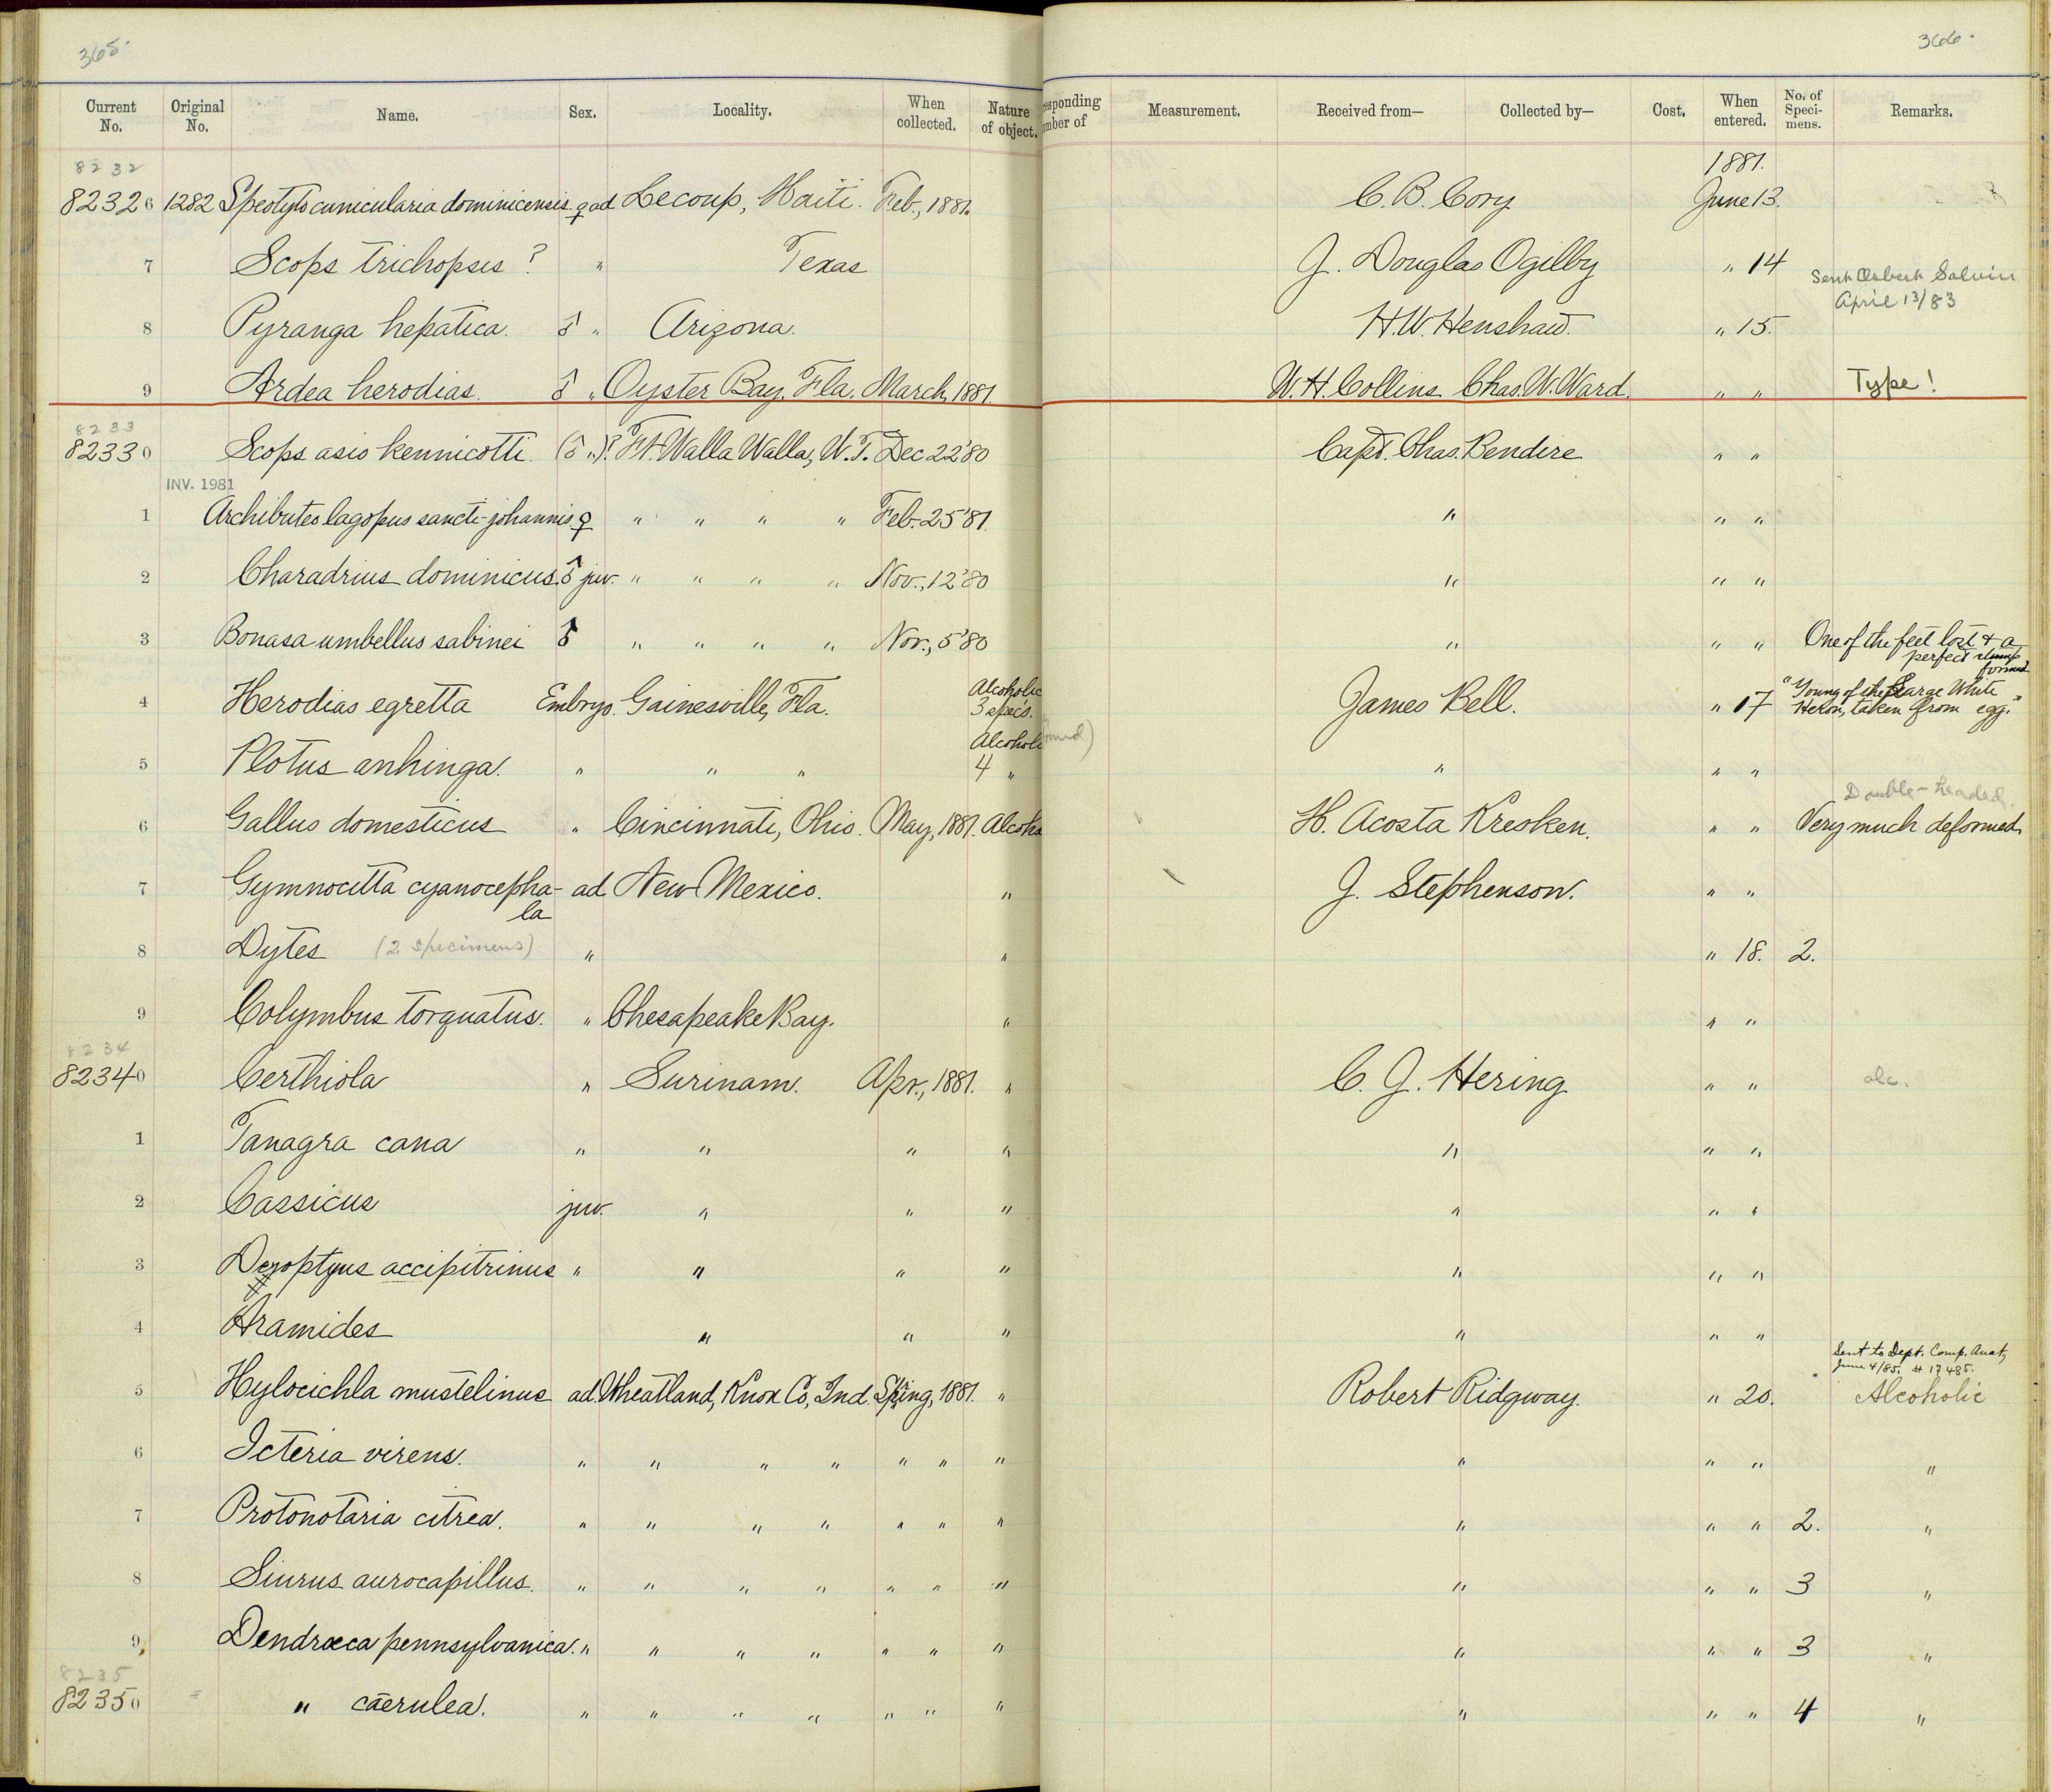 365.
366.
Current No. Original No. Name. Sex. Locality. When collected. Nature of object. responding mber of Measurement. Received from— Collected by— Cost. When entered. No. of Specimens. Remarks.
8232 1881.
82326 1282 Speotyto cunicularia dominicensis ♀ ad Le coup, Haiti. Feb., 1881. C. B. Cory June 13.
7 Scops trichopsis ? " Texas J. Douglas Ogilby " 14
Sent Osbert Salvin
April 13/83
8 Pyranga hepatica. ♂ " Arizona. H. W. Henshaw. " 15.
9 Ardea herodias. ♂ " Oyster Bay, Fla. March, 1881. W. H. Collins Chas. W. Ward. " " Type!
8233
82330 Scops asio kennicotti (♂ ")? Ft. Walla Walla, W.T. Dec 22'80 Capt. Chas. Bendire " "
INV. 1981
1 Archibuteo lagopus sancti-johannis ♀ " " " " Feb. 25'81. " " "
2 Charadrius dominicus. ♂ juv. " " " " Nov., 12'80 " " "
3 Bonasa umbellus sabinei ♂ " " " " Nov., 5'80 " " " One of the feet lost & a
perfect stump
formed
4 Herodias egretta Embryo. Gainesville, Fla. Alcoholic 3 spec's. James Bell. " 17 "Young of the Large White
Heron, taken from egg."
5 Plotus anhinga. " " " Alcohol 4 " " " "
Double-headed.
6 Gallus domesticus " Cincinnati, Ohio. May, 1881. Alcoho H. Acosta Kresken. " " Very much deformed
7 Gymnocitta cyanocepha- ad New Mexico. " J. Stephenson. " "
la
8 Dytes (2 specimens) " " " 18. 2.
9 Colymbus torquatus. " Chesapeake Bay. " " "
8234
82340 Certhiola " Surinam. Apr., 1881. " C. J. Hering " " alc.
1 Tanagra cana " " " " " " "
2 Cassicus juv. " " " " " "
3 Deroptyus accipitrinus " " " " " " "
4 Aramides " " " " " "
Sent to Dept. Comp. Anat,
June 4/85, # 17485.
5 Hylocichla mustelinus ad. Wheatland, Knox Co, Ind. Spring, 1881. " Robert Ridgway. " 20. Alcoholic
6 Icteria virens. " " " " " " " " " " "
7 Protonotaria citrea. " " " " " " " " " " 2. "
8 Siurus aurocapillus. " " " " " " " " " " 3 "
9 Dendrœca pennsylvanica. " " " " " " " " " " 3 "
8235
82350 " caerulea. " " " " " " " " " " 4 "